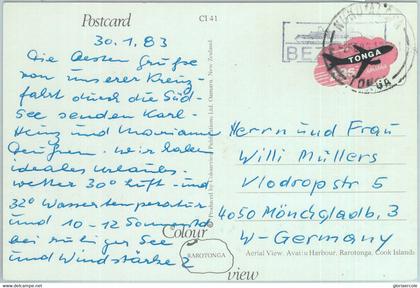 Postcard
CI 41
30.1.83
Die besten Grüße
von unserer Kreuz-
fahrt durch die Süd-
see senden Karl-
Heinz und Marianne
Wir haben
ideales Urlaubs-
wetter 30° Luft - und
32° Wassertemperatur
und 10-12 Sonnenstd
bei ruhiger See
und Windstärke 2
TONGA
TONGA
Herrn und Frau
Willi Müllers
Vlodropstr 5
4050 Mönchgladb. 3
W-Germany
Colour
RAROTONGA
view
Aerial View. Avatiu Harbour. Rarotonga. Cook Islands
gloriasercolls